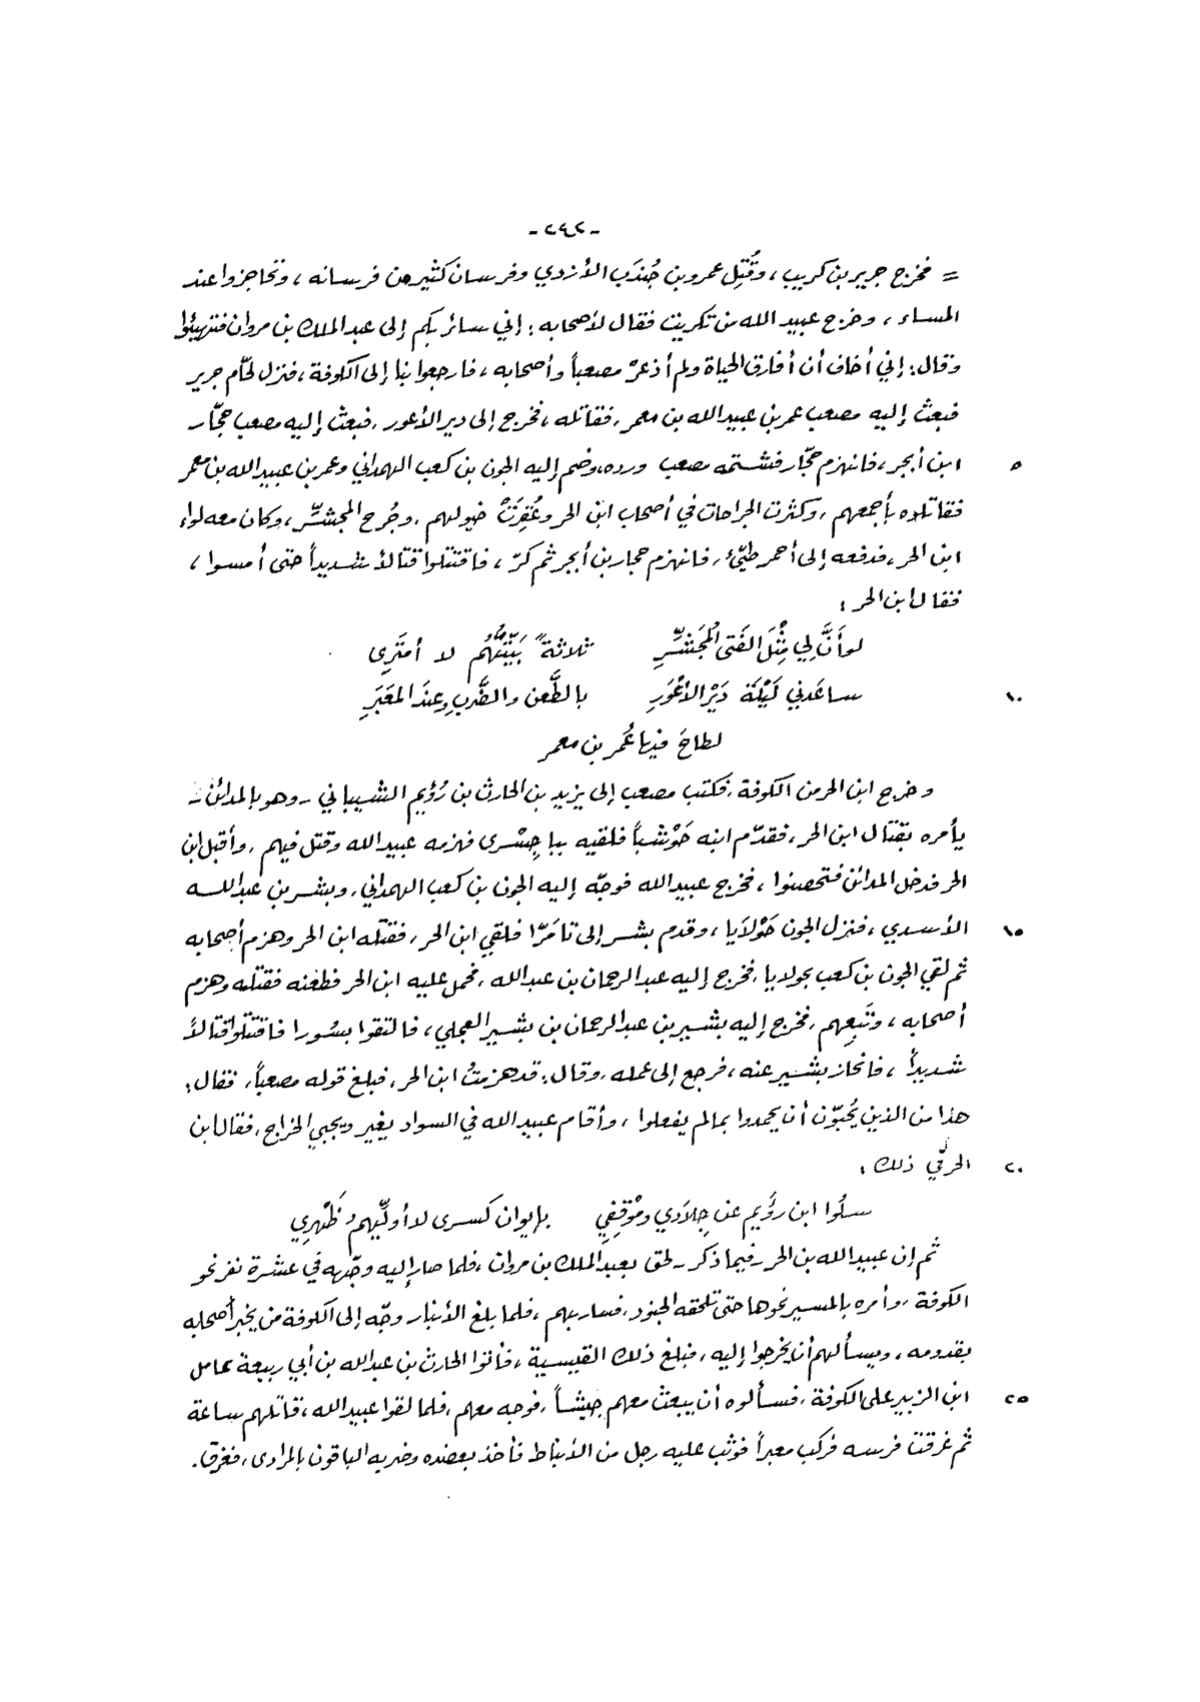 -٢٤٢-
= فخرج جرير بن كريب ، وقُتِل عمرو بن جُندَب الأزدي وفرسان كثير من فرسانه ، وتحاجزوا عند
المساء ، وخرج عبيد الله من تكريت فقال لأصحابه : إني سائر بكم إلى عبد الملك بن مروان فتهيئوا
وقال : إني أخاف أن أفارق الحياة ولم أذعرْ مصعباً وأصحابه ، فارجعوا بنا إلى الكوفة ، فنزل لحّام جرير
فبعث إليه مصعب عمر بن عبيد الله بن معمر ، فقاتله ، فخرج إلى دير الأعور ، فبعث إليه مصعب حجّار
٥ ابن أبجر ، فانهزم حجّار فشتمه مصعب ورده ، وضم إليه الجون بن كعب الهمداني وعمر بن عبيد الله بن معمر
فقاتلاه بأجمعهم ، وكثرت الجراحات في أصحاب ابن الحر وعُقِرَتْ خيولهم ، وجُرح المجشّر ، وكان معه لواء
ابن الحر ، فدفعه إلى أحمر طيّئ ، فانهزم حجار بن أبجر ثم كرّ ، فاقتتلوا قتالاً شديداً حتى أمسوا ،
فقال ابن الحر :
لو أَنَّ لِي مِثْلَ الفَتى المُجَشَّرِ ثلاثةً بَيَّتُّهُم لا أمتَرِي
١٠ ساعَدني لَيْلَة دَيْرِ الأعْوَرِ بالطَّعن والضَّربِ وعِندَ المَعبَرِ
لطاحَ فيها عُمر بن معمر
وخرج ابن الحر من الكوفة ، فكتب مصعب إلى يزيد بن الحارث بن رُؤيم الشيباني - وهو بالمدائن -
يأمره بقتال ابن الحر ، فقدّم ابنه حَوْشباً فلقيه بباجِسْرى فهزمه عبيد الله وقتل فيهم ، وأقبل ابن
الحر فدخل المدائن فتحصنوا ، فخرج عبيد الله فوجّه إليه الجون بن كعب الهمداني ، وبشر بن عبد الله
١٥ الأسدي ، فنزل الجون حَوْلايا ، وقدم بشر إلى تامَرّا فلقي ابن الحر ، فقتله ابن الحر وهزم أصحابه
ثم لقي الجون بن كعب بحولايا ، فخرج إليه عبد الرحمان بن عبد الله ، فحمل عليه ابن الحر فطعنه فقتله وهزم
أصحابه ، وتَبِعهم ، فخرج إليه بشير بن عبد الرحمان بن بشير العجلي ، فالتقوا بسُورا فاقتتلوا قتالاً
شديداً ، فانحاز بشير عنه ، فرجع إلى عمله ، وقال : قد هزمتُ ابن الحر ، فبلغ قوله مصعباً ، فقال :
هذا من الذين يُحبّون أن يحمدوا بما لم يفعلوا ، وأقام عبيد الله في السواد يغير ويجبي الخراج ، فقال ابن
٢٠ الحر في ذلك :
سلُوا ابن رؤَيم عن جِلادي ومَوْقِفِي بإيوان كسرى لا أولِّيهمُ ظَهْرِي
ثم إن عبيد الله بن الحر - فيما ذكر - لحق بعبد الملك بن مروان ، فلما صار إليه وجّهه في عشرة نفر نحو
الكوفة ، وأمره بالمسير نحوها حتى تلحقه الجنود ، فسار بهم ، فلما بلغ الأنبار وجّه إلى الكوفة من يخبر أصحابه
بقدومه ، ويسألهم أن يخرجوا إليه ، فبلغ ذلك القيسية ، فأتوا الحارث بن عبد الله بن أبي ربيعة عامل
٢٥ ابن الزبير على الكوفة ، فسألوه أن يبعث معهم جيشاً ، فوجه معهم ، فلما لقوا عبيد الله ، قاتلهم ساعة
ثم غرقت فرسه فركب معبراً فوثب عليه رجل من الأنباط فأخذ بعضده وضربه الباقون بالمرادى ، فغرق .